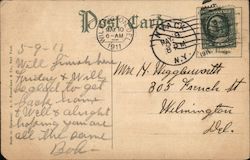 Post Card
MAY 10
6-AM
1911
N.Y.
5-9-11
Will finish here
Tuesday & Will
be glad to get
back home
& Well & alright
hoping you are
all the same
Bob-
Mrs H. Wigglesworth
305 French St
Wilmington
Del.